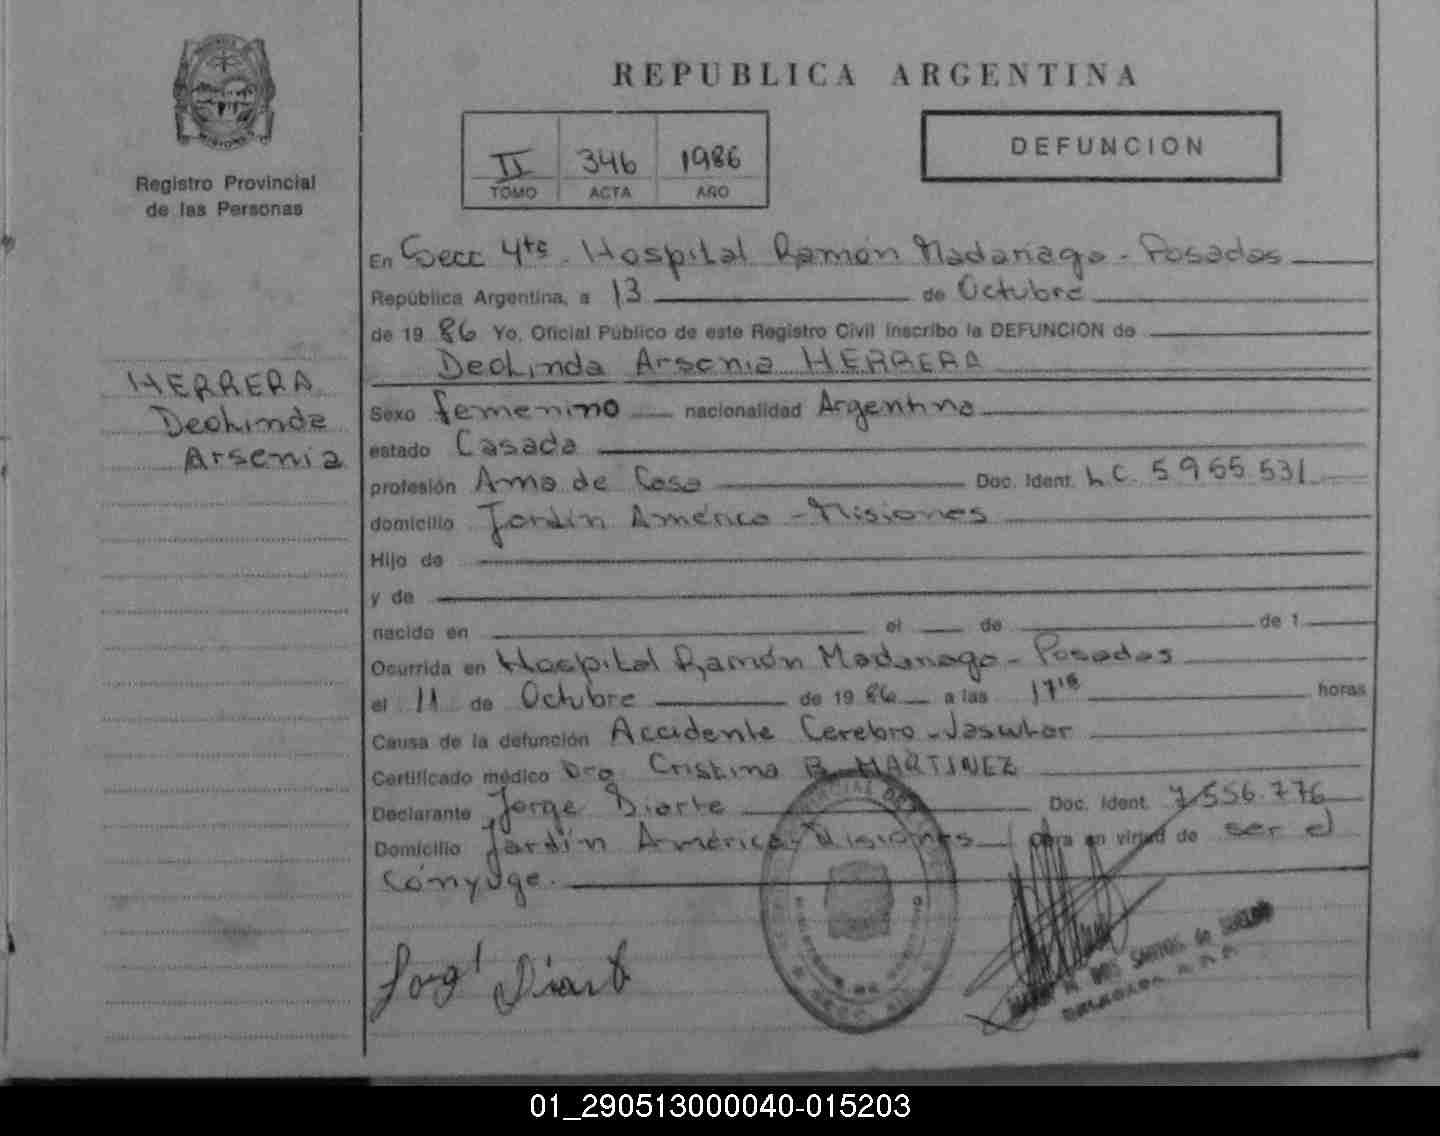 REPUBLICA ARGENTINA
MISIONES
Registro Provincial
de las Personas
II 346 1986
TOMO ACTA AÑO
DEFUNCION
HERRERA
Deolinda
Arsenia
En Secc 4ta. Hospital Ramón Madariaga - Posadas
República Argentina, a 13 de Octubre
de 19 86 Yo, Oficial Público de este Registro Civil inscribo la DEFUNCION de
Deolinda Arsenia HERRERA
Sexo femenino nacionalidad Argentina
estado Casada
profesión Ama de Casa Doc. Ident. L.C. 5.955.531
domicilio Jardín América - Misiones
Hijo de
y de
nacido en el de de 1
Ocurrida en Hospital Ramón Madariaga - Posadas
el 11 de Octubre de 19 86 a las 17 horas
Causa de la defunción Accidente Cerebro-Vascular
Certificado médico Dra. Cristina B. MARTINEZ
Declarante Jorge Diarte Doc. Ident. 7.556.776
Domicilio Jardín América - Misiones obra en virtud de ser el
Cónyuge.
Jorg Diart
DOS SANTOS de
01_290513000040-015203